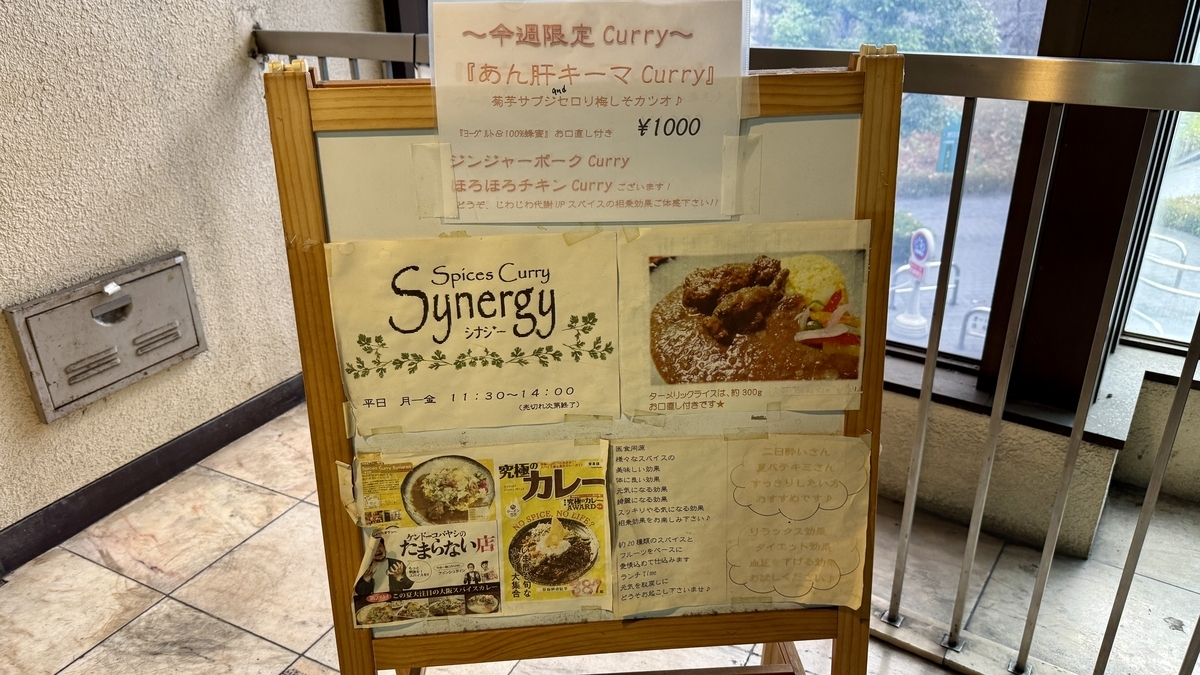 ～今週限定 Curry～
『あん肝キーマ Curry』
and
菊芋サブジセロリ梅しそカツオ♪
『ヨーグルト&100%蜂蜜』お口直し付き ¥1000
ジンジャーポーク Curry
ほろほろチキン Curry ございます!
どうぞ、じわじわ代謝UPスパイスの相乗効果ご体感下さい!!
Spices Curry
Synergy
シナジー
平日 月ー金 11:30～14:00
(売切れ次第終了)
ターメリックライスは、約300g
お口直し付です★
究極の
カレー
究極のカレー
AWARD
NO SPICE, NO LIFE?
大集合
ケンドーコバヤシの
たまらない店
この夏大注目の大阪スパイスカレー
医食同源
様々なスパイスの
美味しい効果
体に良い効果
元気になる効果
綺麗になる効果
スッキリやる気になる効果
相乗効果をお楽しみ下さい♪
約20種類のスパイスと
フルーツをベースに
愛情込めて仕込みます
ランチTime
元気を取戻しに
どうぞお越し下さいませ♪
二日酔いさん
夏バテキミさん
すっきりしたい方
おすすめです♪
リラックス効果
ダイエット効果
血圧を下げる効果
お試しください♪